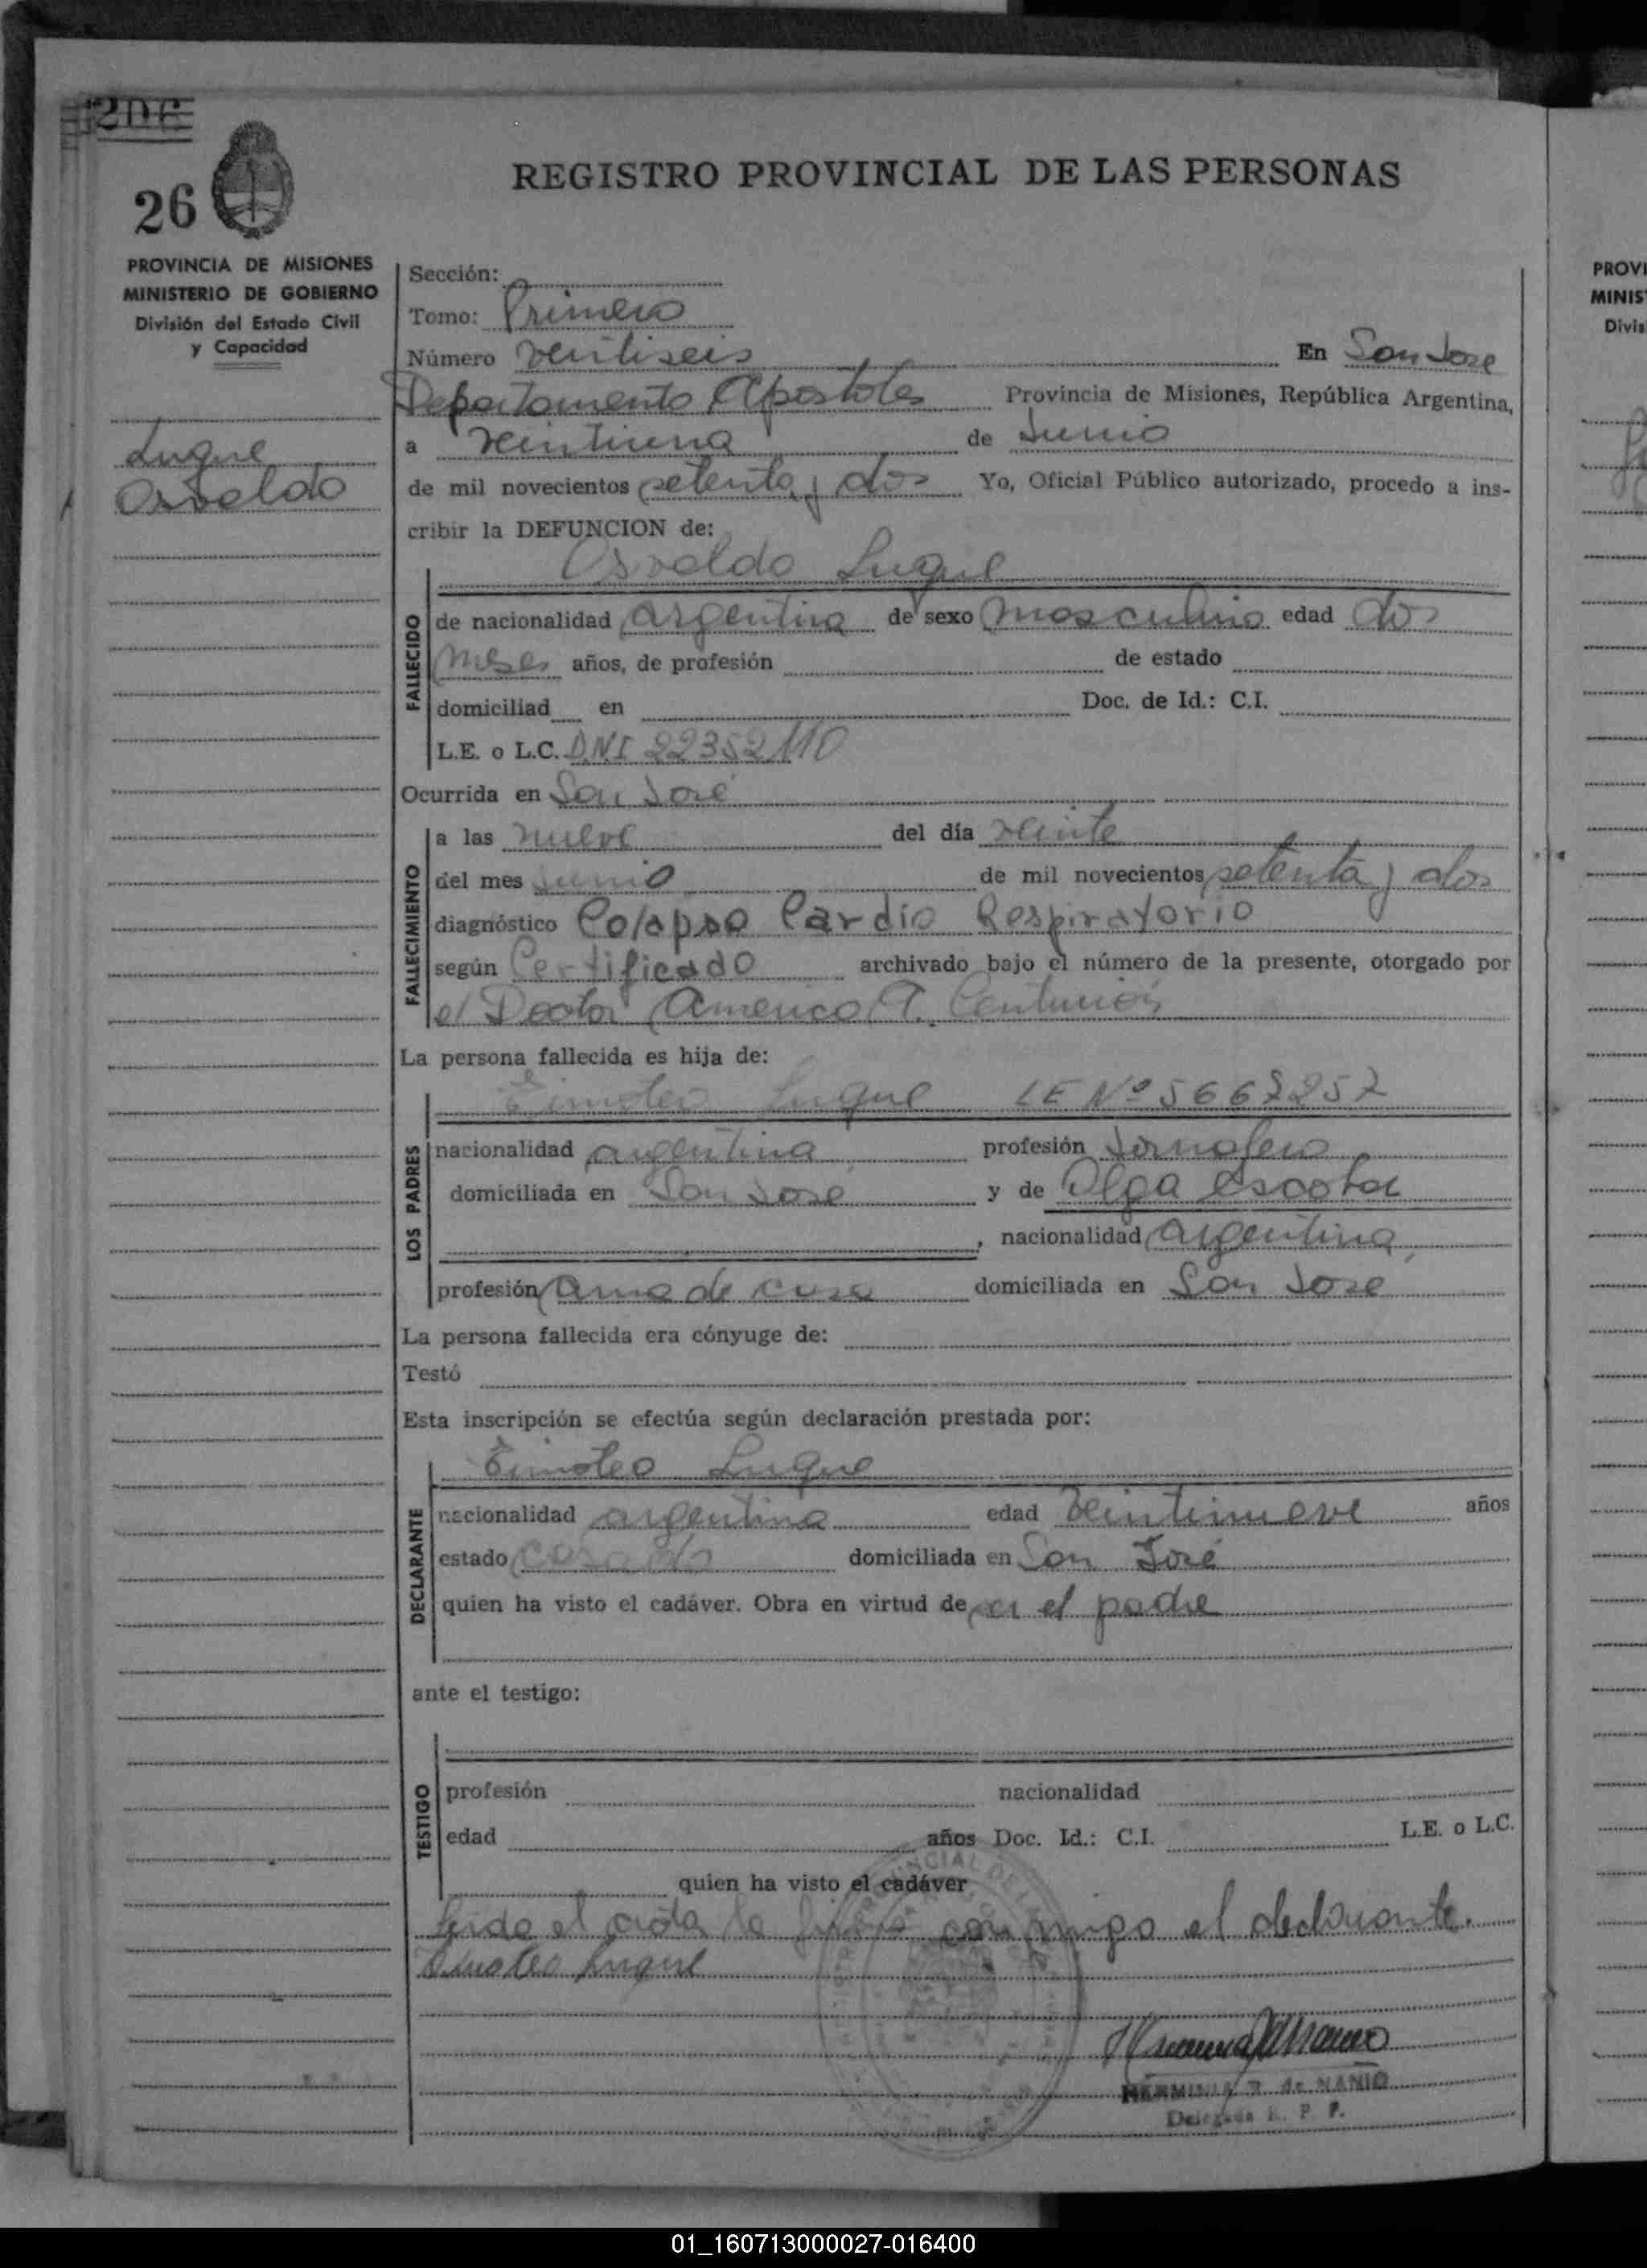 206
26
REGISTRO PROVINCIAL DE LAS PERSONAS
PROVINCIA DE MISIONES
MINISTERIO DE GOBIERNO
División del Estado Civil
y Capacidad
Luque
Osvaldo
Sección:
Tomo: Primero
Número veintiseis En San Jose
Departamento Apostoles Provincia de Misiones, República Argentina,
a veintiuna de Junio
de mil novecientos setenta y dos Yo, Oficial Público autorizado, procedo a ins-
cribir la DEFUNCION de:
Osvaldo Luque
FALLECIDO
de nacionalidad argentina de sexo masculino edad dos
meses años, de profesión de estado
domiciliad en Doc. de Id.: C.I.
L.E. o L.C. D.N.I 22352110
Ocurrida en San José
FALLECIMIENTO
a las nueve del día veinte
del mes Junio de mil novecientos setenta y dos
diagnóstico Colapso Cardio Respiratorio
según Certificado archivado bajo el número de la presente, otorgado por
el Doctor Americo A. Centurión
La persona fallecida es hija de:
Timoteo Luque LE Nº 5667257
LOS PADRES
nacionalidad argentina profesión Jornalero
domiciliada en San Jose y de Olga Escobar
, nacionalidad argentina,
profesión ama de casa domiciliada en San Jose
La persona fallecida era cónyuge de:
Testó
Esta inscripción se efectúa según declaración prestada por:
Timoteo Luque
DECLARANTE
nacionalidad argentina edad veintinueve años
estado casado domiciliada en San José
quien ha visto el cadáver. Obra en virtud de ser el padre
ante el testigo:
TESTIGO
profesión nacionalidad
edad años Doc. Id.: C.I. L.E. o L.C.
quien ha visto el cadáver
Leida el acta la firma conmigo el declarante.
Timoteo Luque
HERMINIA Z. de NANIO
Delegada R. P. P.
PROVI
MINIS
Divis
01_160713000027-016400